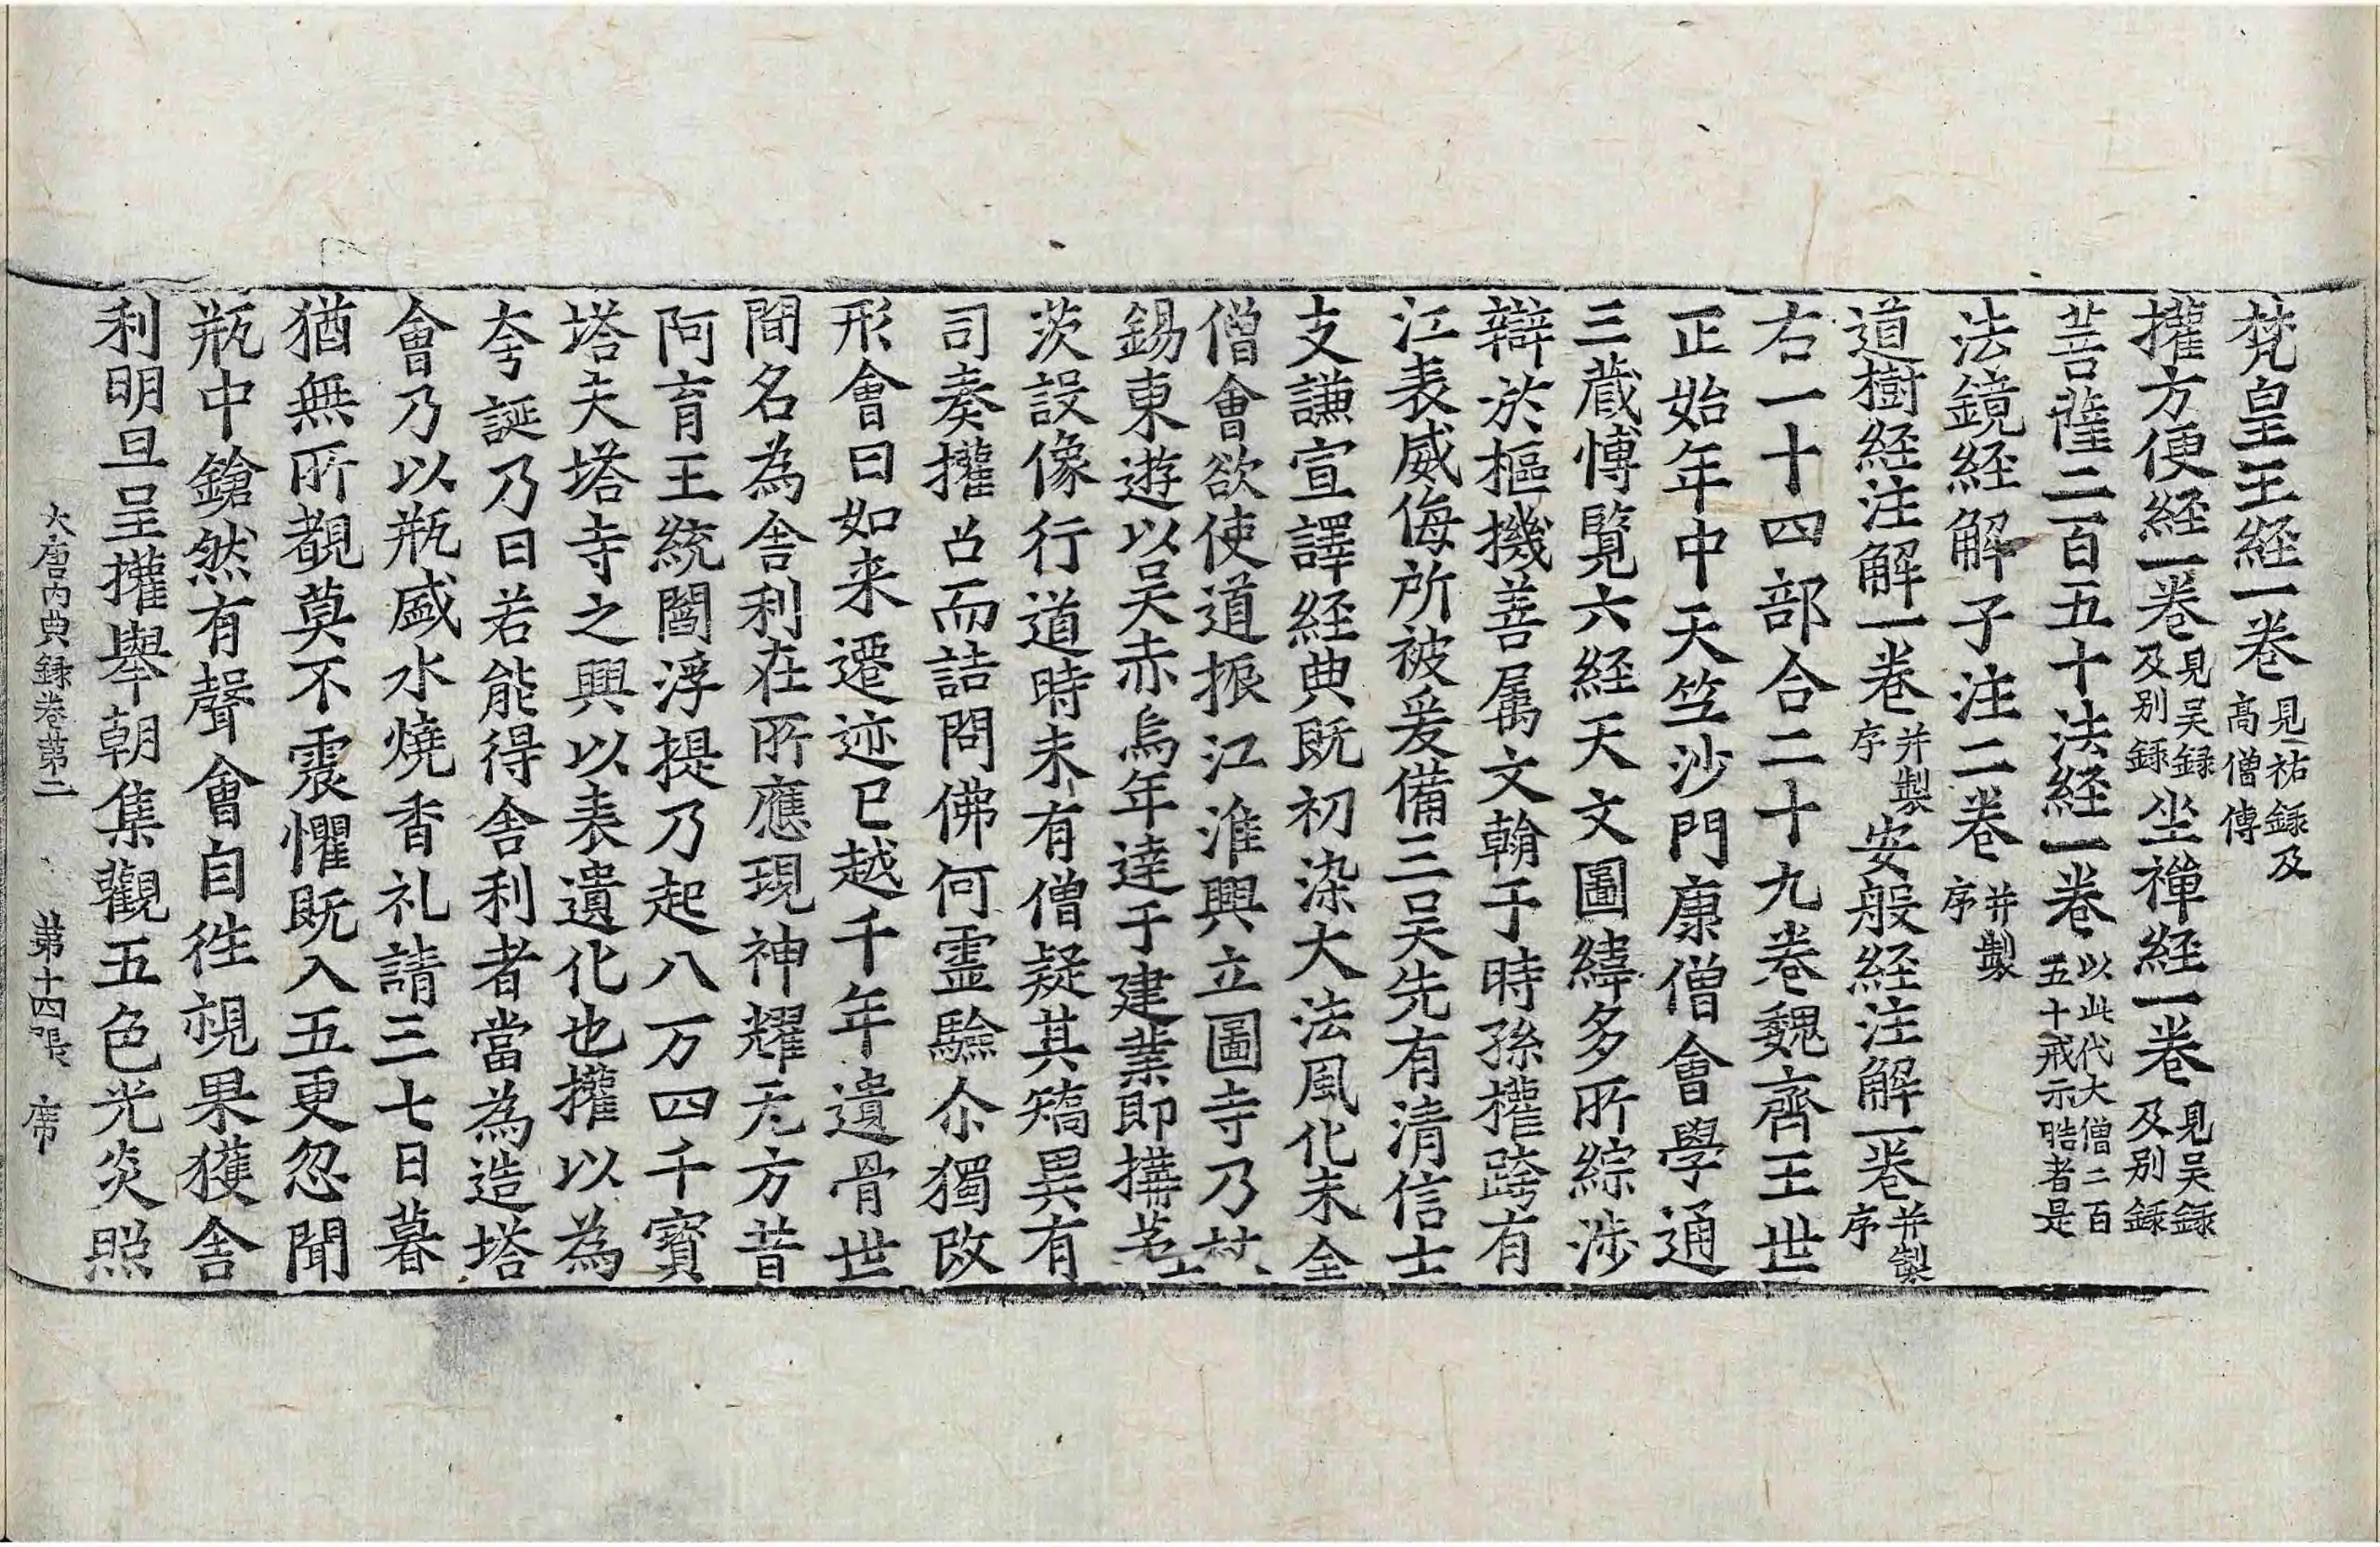 梵皇王経一卷見祐録及高僧傳
權方便経一卷見吴録及别録坐禅経一卷見吴録及别録
菩薩二百五十法経一卷以此代大僧二百五十戒示晧者是
法鏡経解子注二卷并製序
道樹経注解一卷并製序安般経注解一卷并製序
右一十四部合二十九卷魏齊王世
正始年中天竺沙門康僧會學通
三蔵愽覧六経天文圖緯多所綜涉
辯於樞機善属文翰于時孫權跨有
江表威侮所被爰備三吴先有清信士
支謙宣譯経典既初染大法風化未全
僧會欲使道振江淮興立圖寺乃杖
錫東遊以吴赤烏年達于建業即搆茅
茨設像行道時未有僧疑其矯異有
司奏權召而詰問佛何霊驗尒獨改
形會曰如来遷迹已越千年遺骨世
間名為舎利在所應現神耀无方昔
阿育王統閻浮提乃起八万四千寳
塔夫塔寺之興以表遺化也權以為
夸誕乃曰若能得舎利者當為造塔
會乃以瓶盛水燒香礼請三七日暮
猶無所覩莫不震懼既入五更忽聞
瓶中鎗然有聲會自徃視果獲舎
利明旦呈權舉朝集觀五色光炎照
大唐内典録卷第二　第十四張　席